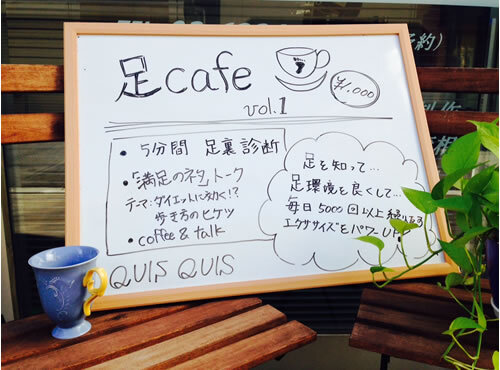 足cafe
¥1,000
vol.1
・5分間 足裏診断
・「満足のネタ」トーク
テーマ:ダイエットに効く!?
歩き方のヒケツ
・coffee & talk
足を知って…
足環境を良くして…
毎日5000回以上繰り返える
エクササイズをパワーUP!
QUIS QUIS
約)